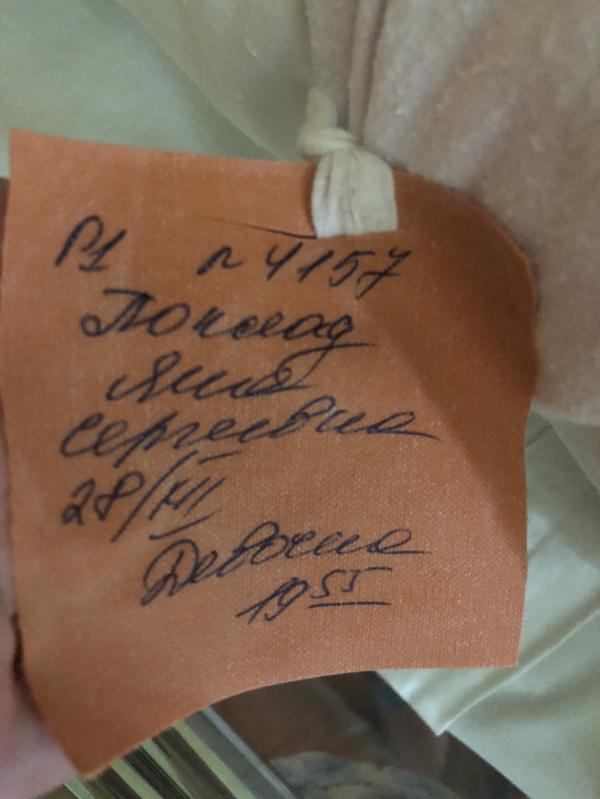 Р1 № 4157
Поклад
Яна
Сергеевна
28/XII
Девочка
19 55